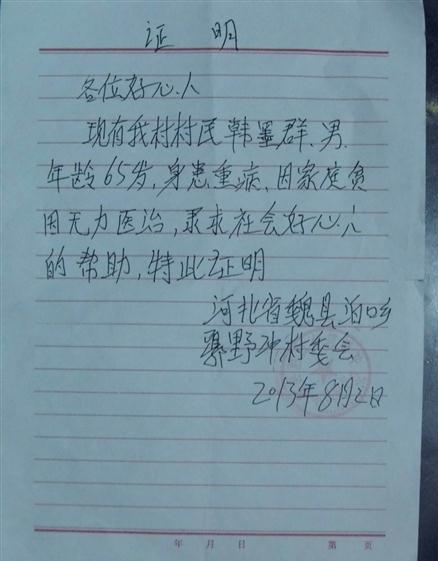 证 明
各位好心人
现有我村村民韩墨群、男、
年龄65岁,身患重病,因家庭贫
困无力医治,求求社会好心人
的帮助,特此证明
河北省魏县泊口乡
野冲村委会
2013年8月2日
年 月 日 第 页